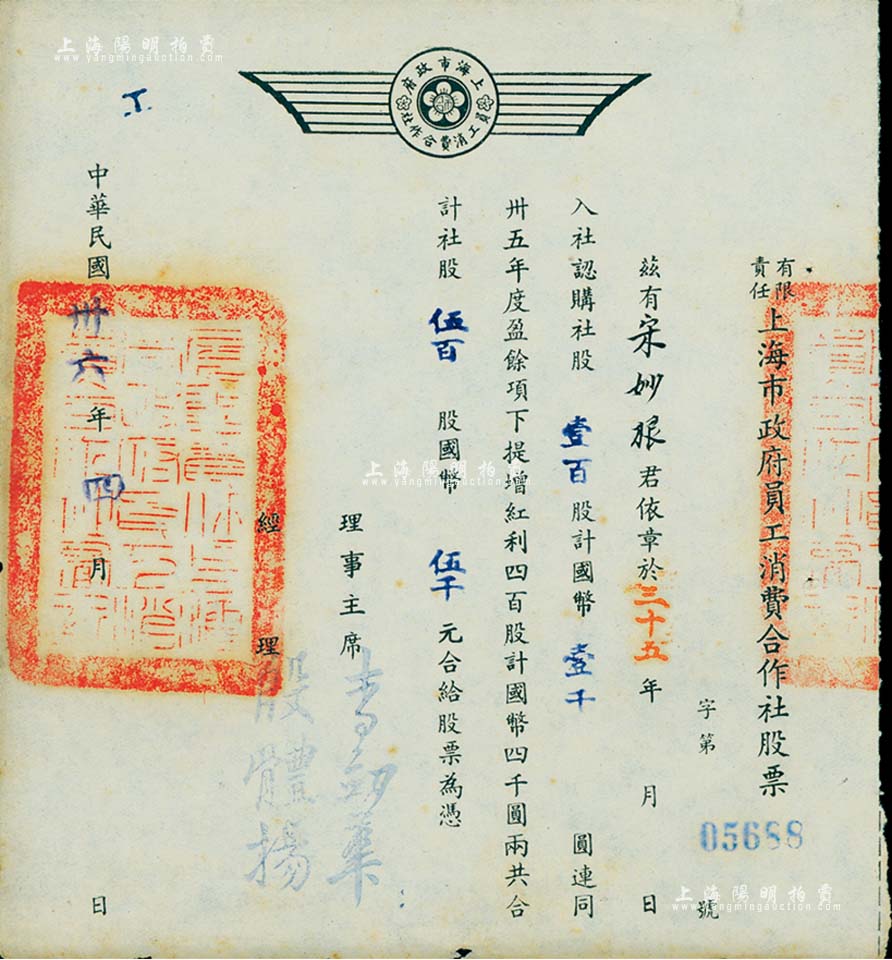 上海市政府
員工消費合作社
有限責任上海市政府員工消費合作社股票
字第05688號
茲有宋妙根君依章於三十五年 月 日
入社認購社股壹百股計國幣壹千圓連同
卅五年度盈餘項下提增紅利四百股計國幣四千圓兩共合
計社股伍百股國幣伍千元合給股票為憑
理事主席
經理 殷體揚
中華民國卅六年四月 日
上海陽明拍賣
www.yangmingauction.com
上海陽明拍賣
www.yangmingauction.com
上海陽明拍賣
www.yangmingauction.com